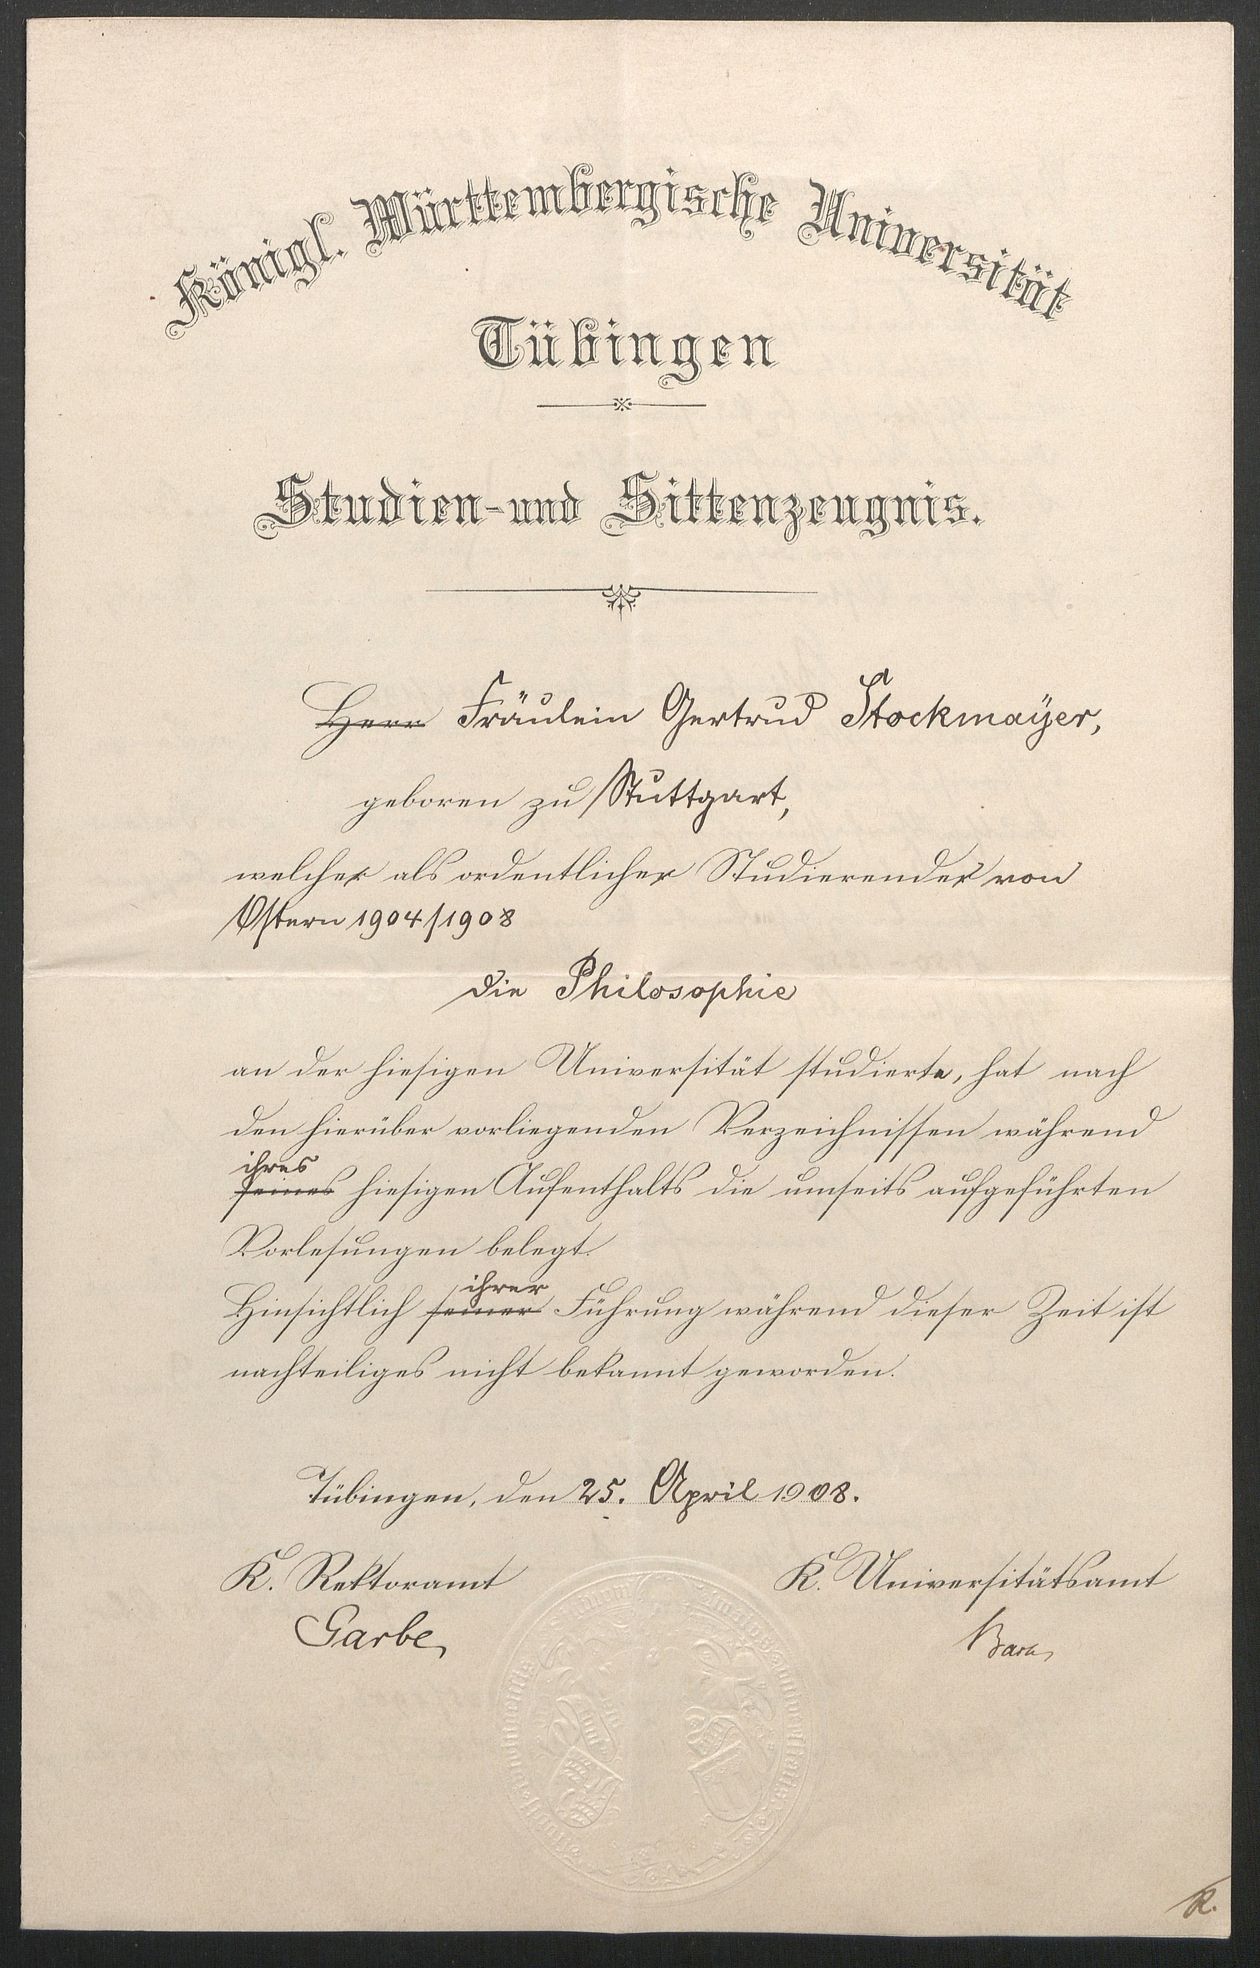 Königl. Württembergische Universität
Tübingen
Studien- und Sittenzeugnis.
Herr Fräulein Gertrud Stockmayer,
geboren zu Stuttgart,
welcher als ordentlicher Studierender von
Ostern 1904/1908
die Philosophie
an der hiesigen Universität studierte, hat nach
den hierüber vorliegenden Verzeichnissen während
ihres
seines hiesigen Aufenthalts die umseits aufgeführten
Vorlesungen belegt.
ihrer
Hinsichtlich seiner Führung während dieser Zeit ist
nachteiliges nicht bekannt geworden.
Tübingen, den 25. April 1908.
K. Rektoramt
K. Universitätsamt
Garbe
R.